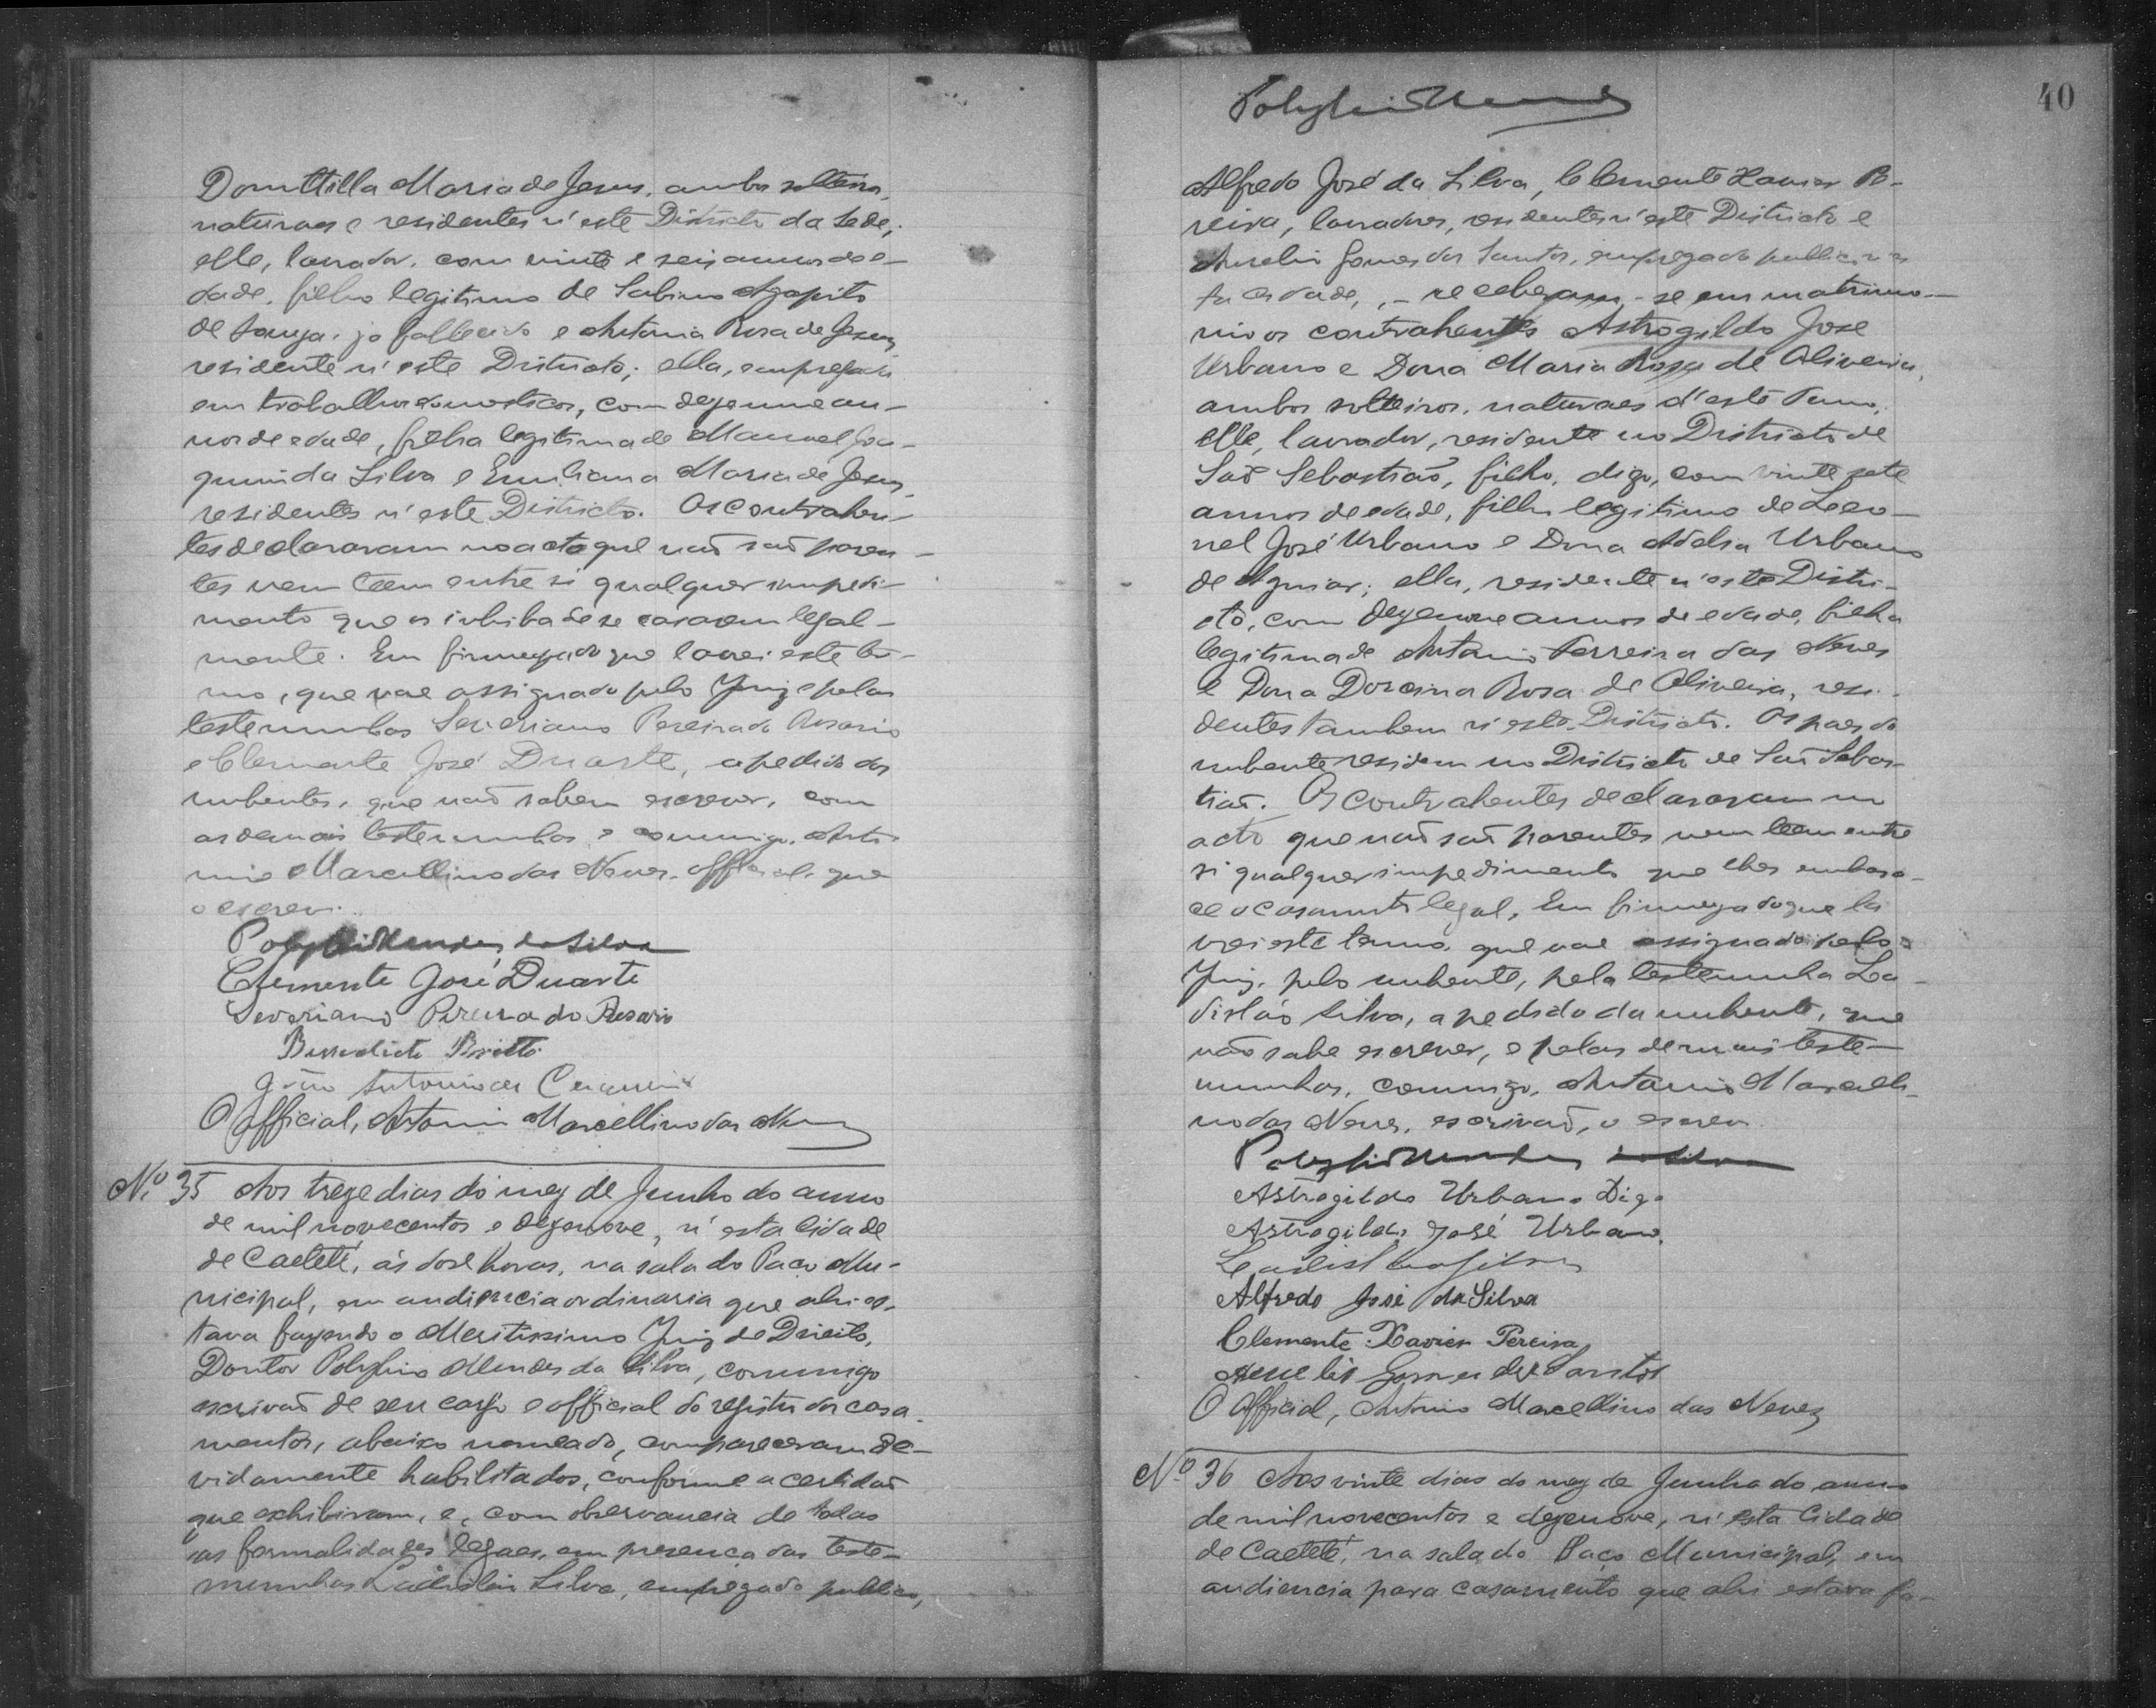 Domittilla Maria de Jesus, ambos solteiros,
naturaes e residentes n'este Districto da Sede;
elle, lavrador, com vinte e seis annos de e-
dade, filho legitimo de Sabino Agapito
de Souza, já fallecido e Antonia Rosa de Jesus,
residente n'este Districto; ella, empregada
em trabalhos domesticos, com dezenove an-
nos de edade, filha legitima de Manoel Joa-
quim da Silva e Emiliana Maria de Jesus,
residentes n'este Districto. Os contrahen-
tes declararam no acto que não são paren-
tes nem teem entre si qualquer impedi-
mento que os inhiba de se casarem legal-
mente. Em firmeza do que lavrei este ter-
mo, que vae assignado pelo Juiz e pelas
testemunhas Severiano Pereira do Rosario
e Clemente José Duarte, a pedido dos
nubentes, que não sabem escrever, com
as demais testemunhas e commigo, Anto-
nio Marcellino das Neves, official, que
o escrevi.
Polybio Mendes da Silva
Clemente José Duarte
Severiano Pereira do Rosario
Benedicto Britto
João Antonio de Cerqueira
O Official, Antonio Marcellino das Neves
Nº 35 Aos treze dias do mez de Junho do anno
de mil novecentos e dezenove, n'esta Cidade
de Caeteté, ás dose horas, na sala do Paço Mu-
nicipal, em audiencia ordinaria que ahi es-
tava fazendo o Meritissimo Juiz de Direito,
Doutor Polybio Mendes da Silva, commigo
escrivão de seu cargo e official do registro dos casa-
mentos, abaixo nomeado, compareceram de-
vidamente habilitados, conforme a certidão
que exhibiram, e, com observancia de todas
as formalidades legaes, em presença das teste-
munhas Ladisláo Silva, empregado publico,
40
Polybio Mendes
Alfredo José da Silva, Clemente Xavier Pe-
reira, lavradores, residentes n'este Districto e
Aurelio Gomes dos Santos, empregado publico n'es-
ta cidade, - receberam-se em matrimo-
nio os contrahentes Astrogildo José
Urbano e Dona Maria Rosa de Oliveira,
ambos solteiros, naturaes d'este Termo,
elle, lavrador, residente no Districto de
São Sebastião, filho, digo, com vinte sete
annos de edade, filho legitimo de Leo-
nel José Urbano e Dona Adelia Urbano
de Aguiar; ella, residente n'este Distri-
cto, com dezenove annos de edade, filha
legitima de Antonio Ferreira das Neves
e Dona Dorcina Rosa de Oliveira, resi-
dentes tambem n'este Districto. Os paes do
nubente residem no Districto de São Sebas-
tião. Os contrahentes declararam no
acto que não são parentes nem teem entre
si qualquer impedimento que lhes embara-
ce o casamento legal. Em firmeza do que la-
vrei este termo, que vae assignado pelo
Juiz, pelo nubente, pela testemunha La-
disláo Silva, a pedido da nubente, que
não sabe escrever, e pelas demais teste-
munhas, commigo, Antonio Marcelli-
no das Neves, escrivão, o escrevi
Polybio Mendes da Silva
Astrogildo Urbano Digo
Astrogildo José Urbano.
Ladisláo Silva
Alfredo José da Silva
Clemente Xavier Pereira
Aurelio Gomes dos Santos
O Official, Antonio Marcellino das Neves
Nº 36 Aos vinte dias do mez de Junho do anno
de mil novecentos e dezenove, n'esta Cidade
de Caeteté, na sala do Paço Municipal, em
audiencia para casamento que ahi estava fa-